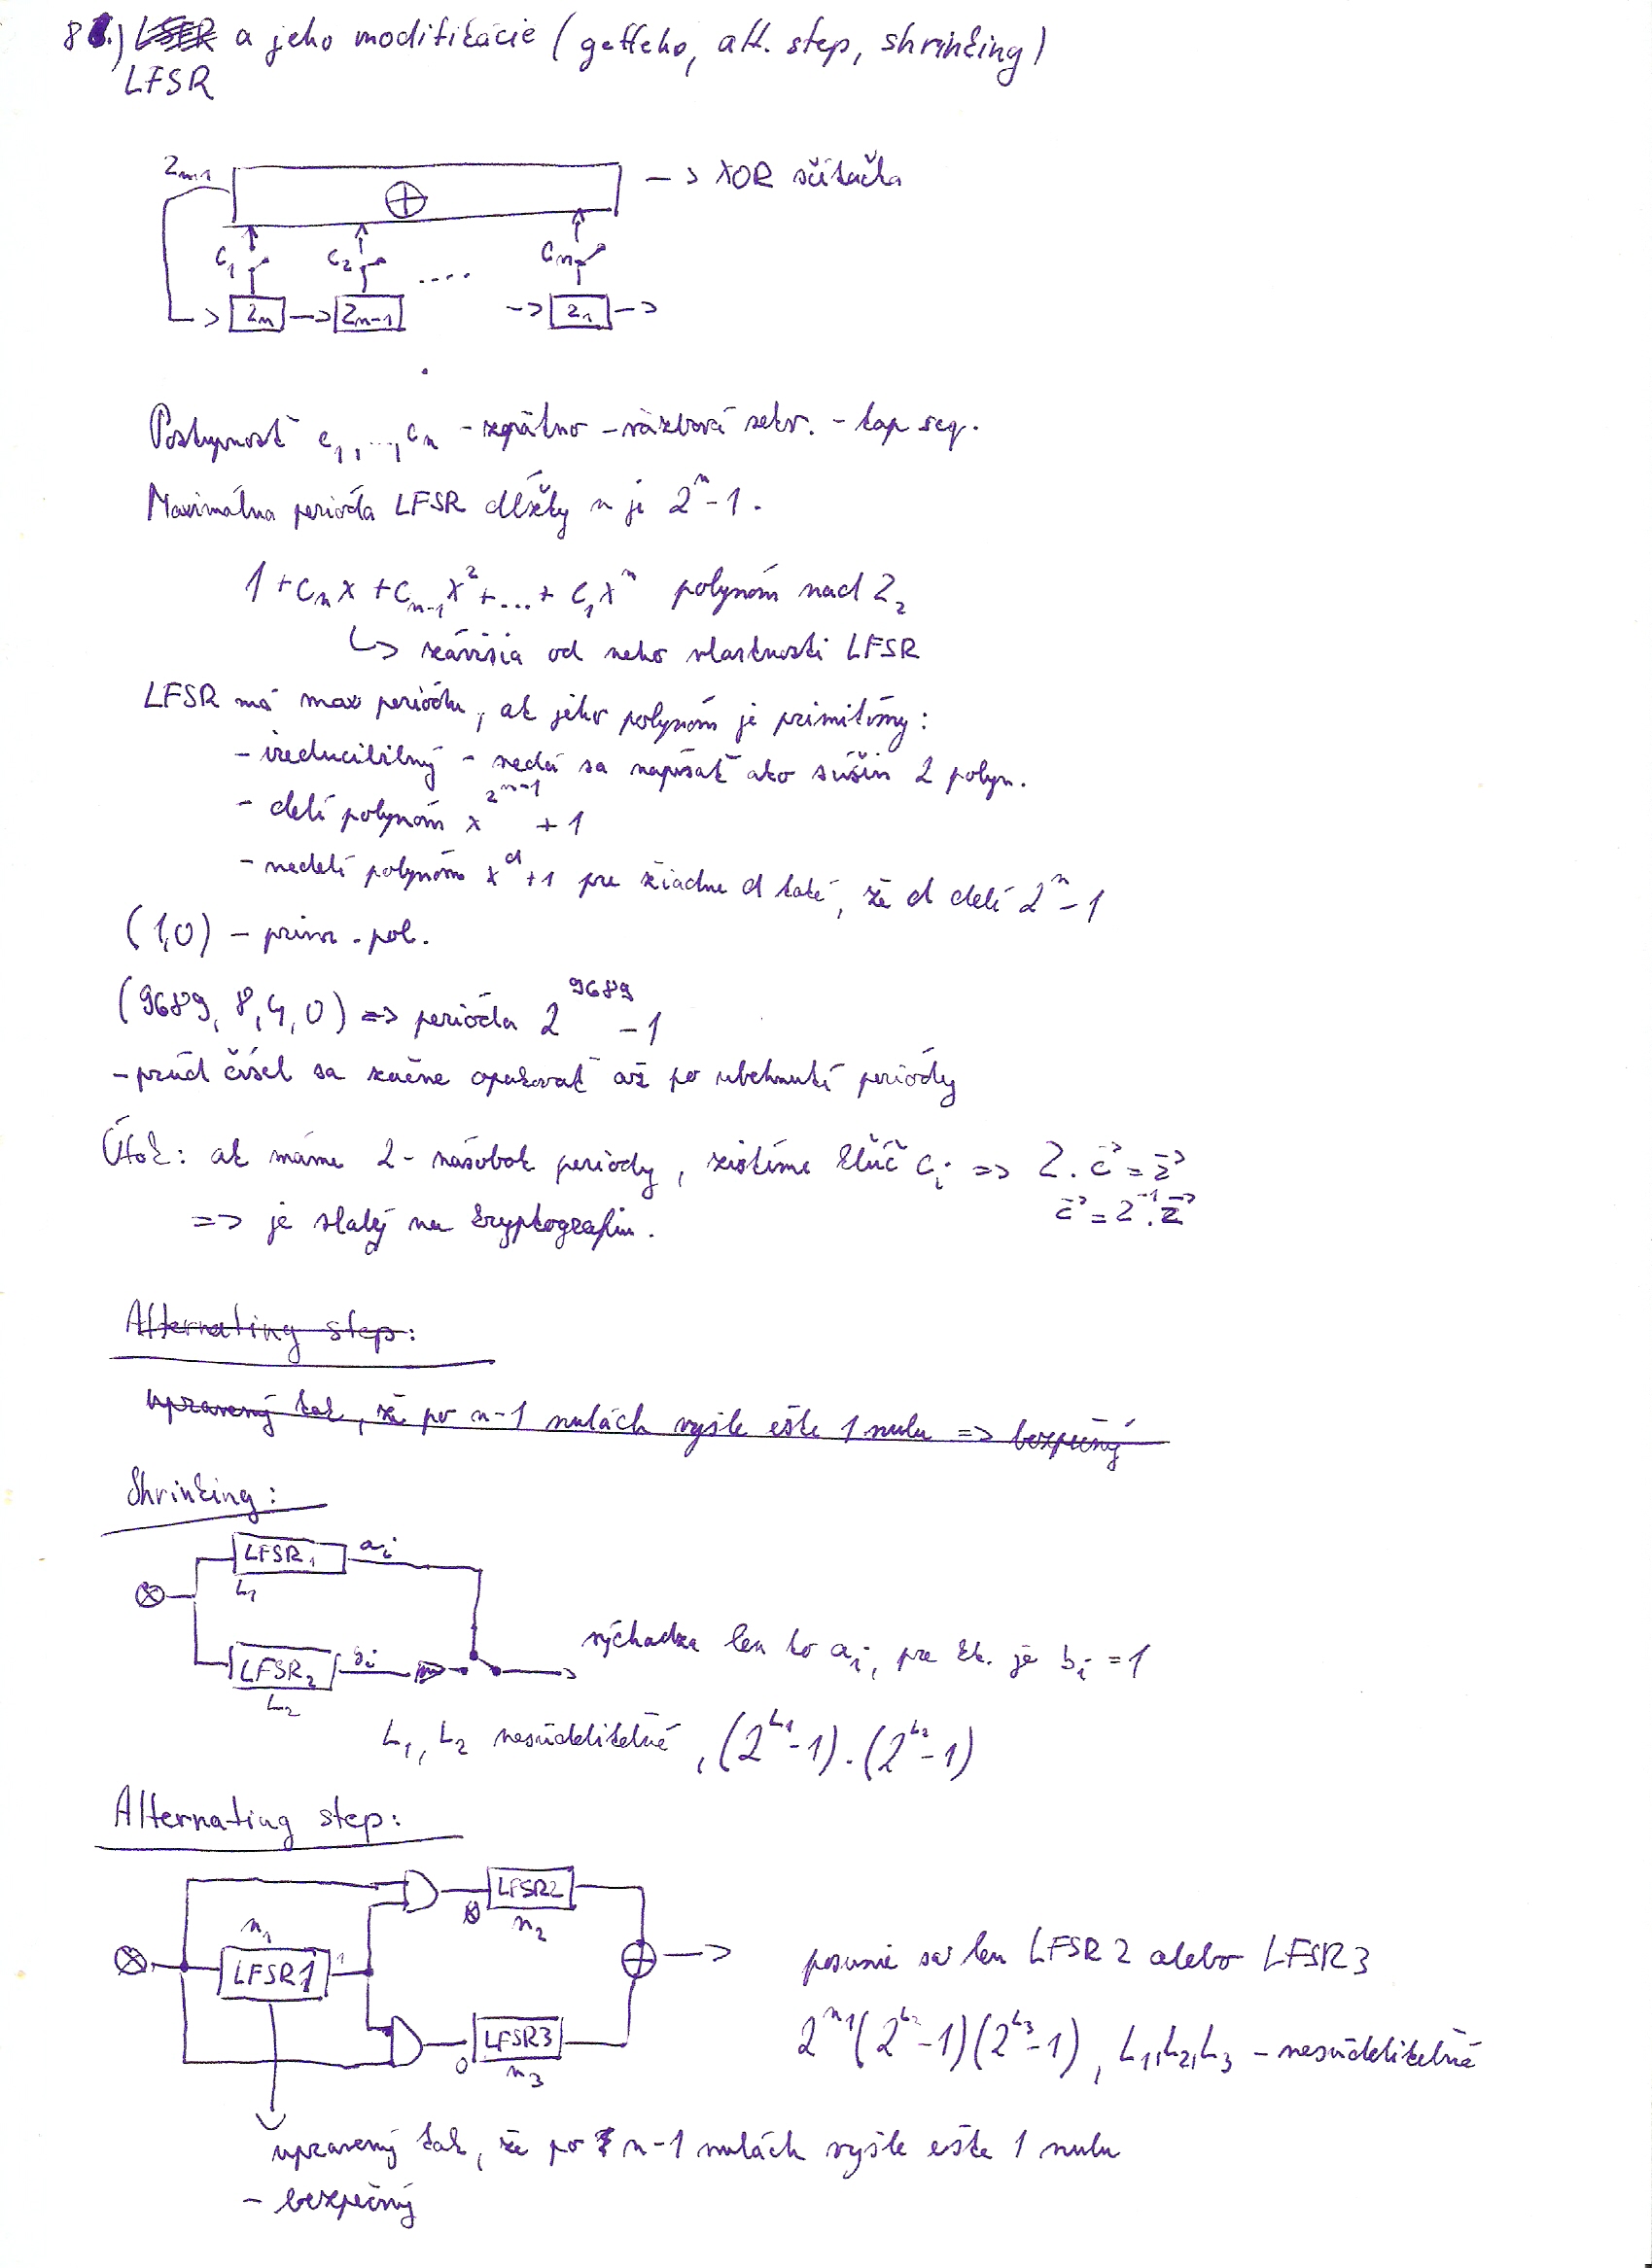 8.) LFSR a jeho modifikácie (geffeho, alt. step, shrinking)
LFSR
z_{n+1}
⊕ -> XOR sčítačka
c_1 c_2 .... c_n
-> z_n -> z_{n-1} -> z_1 ->
Postupnosť c_1, ..., c_n - spätno-väzbová sekv. - tap seq.
Maximálna perióda LFSR dĺžky n je 2^n - 1.
1 + c_n x + c_{n-1} x^2 + ... + c_1 x^n polynóm nad Z_2
↳ závisia od neho vlastnosti LFSR
LFSR má max periódu, ak jeho polynóm je primitívny:
- ireducibilný - nedá sa napísať ako súčin 2 polyn.
- delí polynóm x^{2^n-1} + 1
- nedelí polynóm x^d + 1 pre žiadne d také, že d delí 2^n - 1
(1,0) - prim. pol.
(9689, 8, 4, 0) => perióda 2^{9689} - 1
- prúd čísel sa začne opakovať až po ubehnutí periódy
Útok: ak máme 2-násobok periódy, zistíme kľúč c_i => Z.c⃗ = z⃗
c⃗ = Z^{-1}.z⃗
=> je slabý na kryptografiu.
Alternating step:
upravený tak, že po n-1 nulách vyšle ešte 1 nulu => bezpečný
Shrinking:
LFSR_1 a_i
L_1
LFSR_2 b_i
L_2
vychádza len to a_i, pre kt. je b_i = 1
L_1, L_2 nesúdeliteľné, (2^{L_1} - 1).(2^{L_2} - 1)
Alternating step:
LFSR2
n_2
n_1
LFSR1 1
⊕ ->
posunie sa len LFSR2 alebo LFSR3
LFSR3
0 n_3
2^{n_1}(2^{L_2} - 1)(2^{L_3} - 1), L_1, L_2, L_3 - nesúdeliteľné
upravený tak, že po n-1 nulách vyšle ešte 1 nulu
- bezpečný